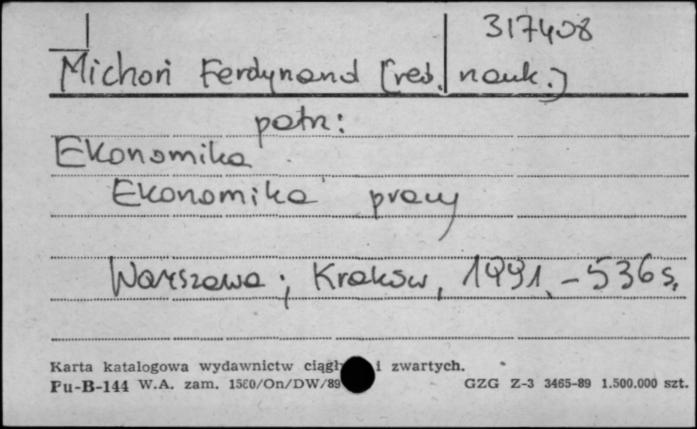 317408
Michoń Ferdynand [red. nauk.]
patrz:
Ekonomika
Ekonomika pracy
Warszawa; Kraków, 1991. – 536 s.
Karta katalogowa wydawnictw i zwartych.
Pu-B-144 W.A. zam. 1560/On/DW/89 GZG Z-3 3465-89 1.500.000 szt.